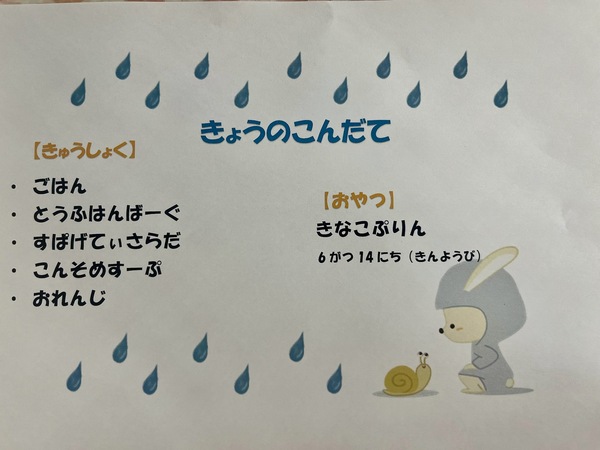 きょうのこんだて
【きゅうしょく】
・ ごはん
・ とうふはんばーぐ
・ すぱげてぃさらだ
・ こんそめすーぷ
・ おれんじ
【おやつ】
きなこぷりん
6がつ14にち（きんようび）